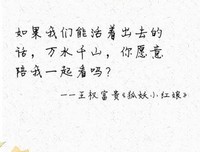 如果我们能活着出去的
话，万水千山，你愿意
陪我一起看吗？
---王权富贵《狐妖小红娘》